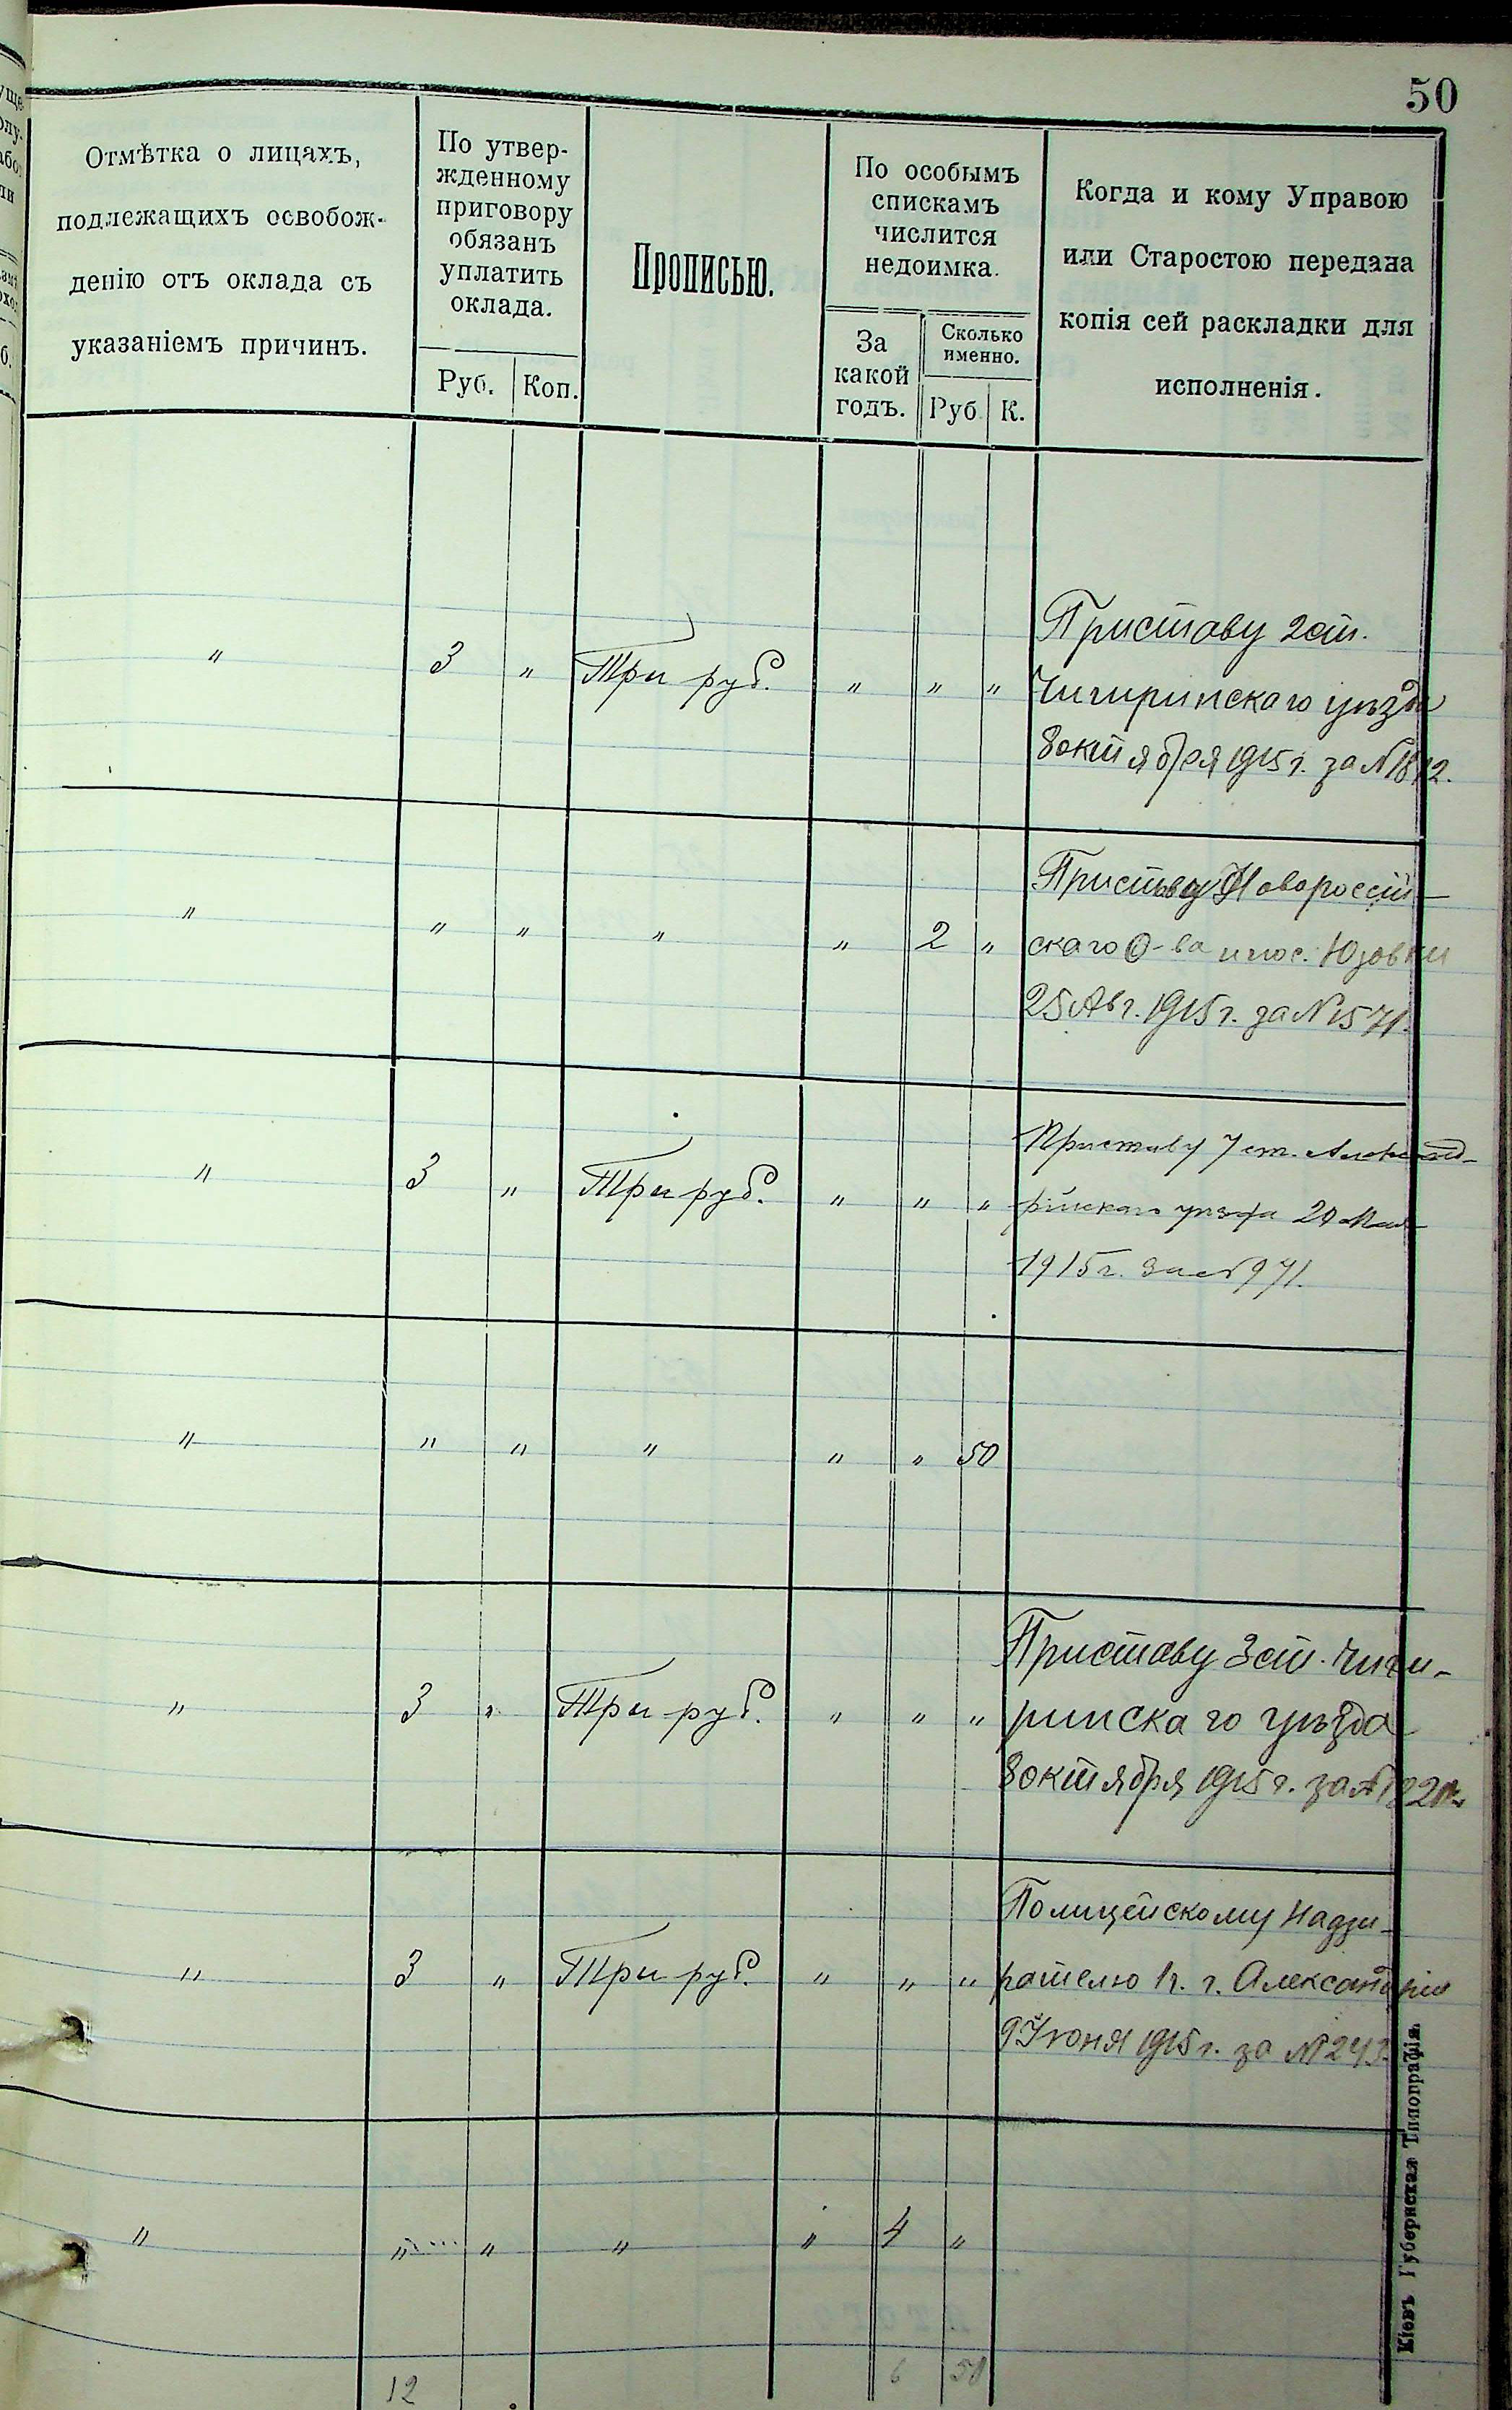 50
Отмѣтка о лицахъ,
подлежащихъ освобож-
денію отъ оклада съ
указаніемъ причинъ.
По утвер-
жденному
приговору
обязанъ
уплатить
оклада.
Руб. Коп.
Прописью.
По особымъ
спискамъ
числится
недоимка.
За
какой
годъ.
Сколько
именно.
Руб К.
Когда и кому Управою
или Старостою передана
копія сей раскладки для
исполненія.
" 3 " Три руб. " " "
Приставу 2 ст.
Чигиринскаго уѣзда
8 октября 1915 г. за №
" " " " " 2 "
Приставу Новороссій-
скаго О-ва и пос. Юзовки
25 Авг. 1915 г. за № 1571.
" 3 " Три руб. " " "
Приставу 7 ст. Александ-
рійскаго уѣзда 20 Мая
1915 г. за № 971.
" " " " " " 50
" 3 " Три руб. " " "
Приставу 3 ст. Чиги-
ринскаго уѣзда
8 октября 1915 г. за №
" 3 " Три руб. " " "
Полицейскому Надзи-
рателю 1 ч. г. Александріи
9 Іюня 1915 г. за №
" " " " " 4 "
12 6 50
Кіевъ Губернская Типографія.